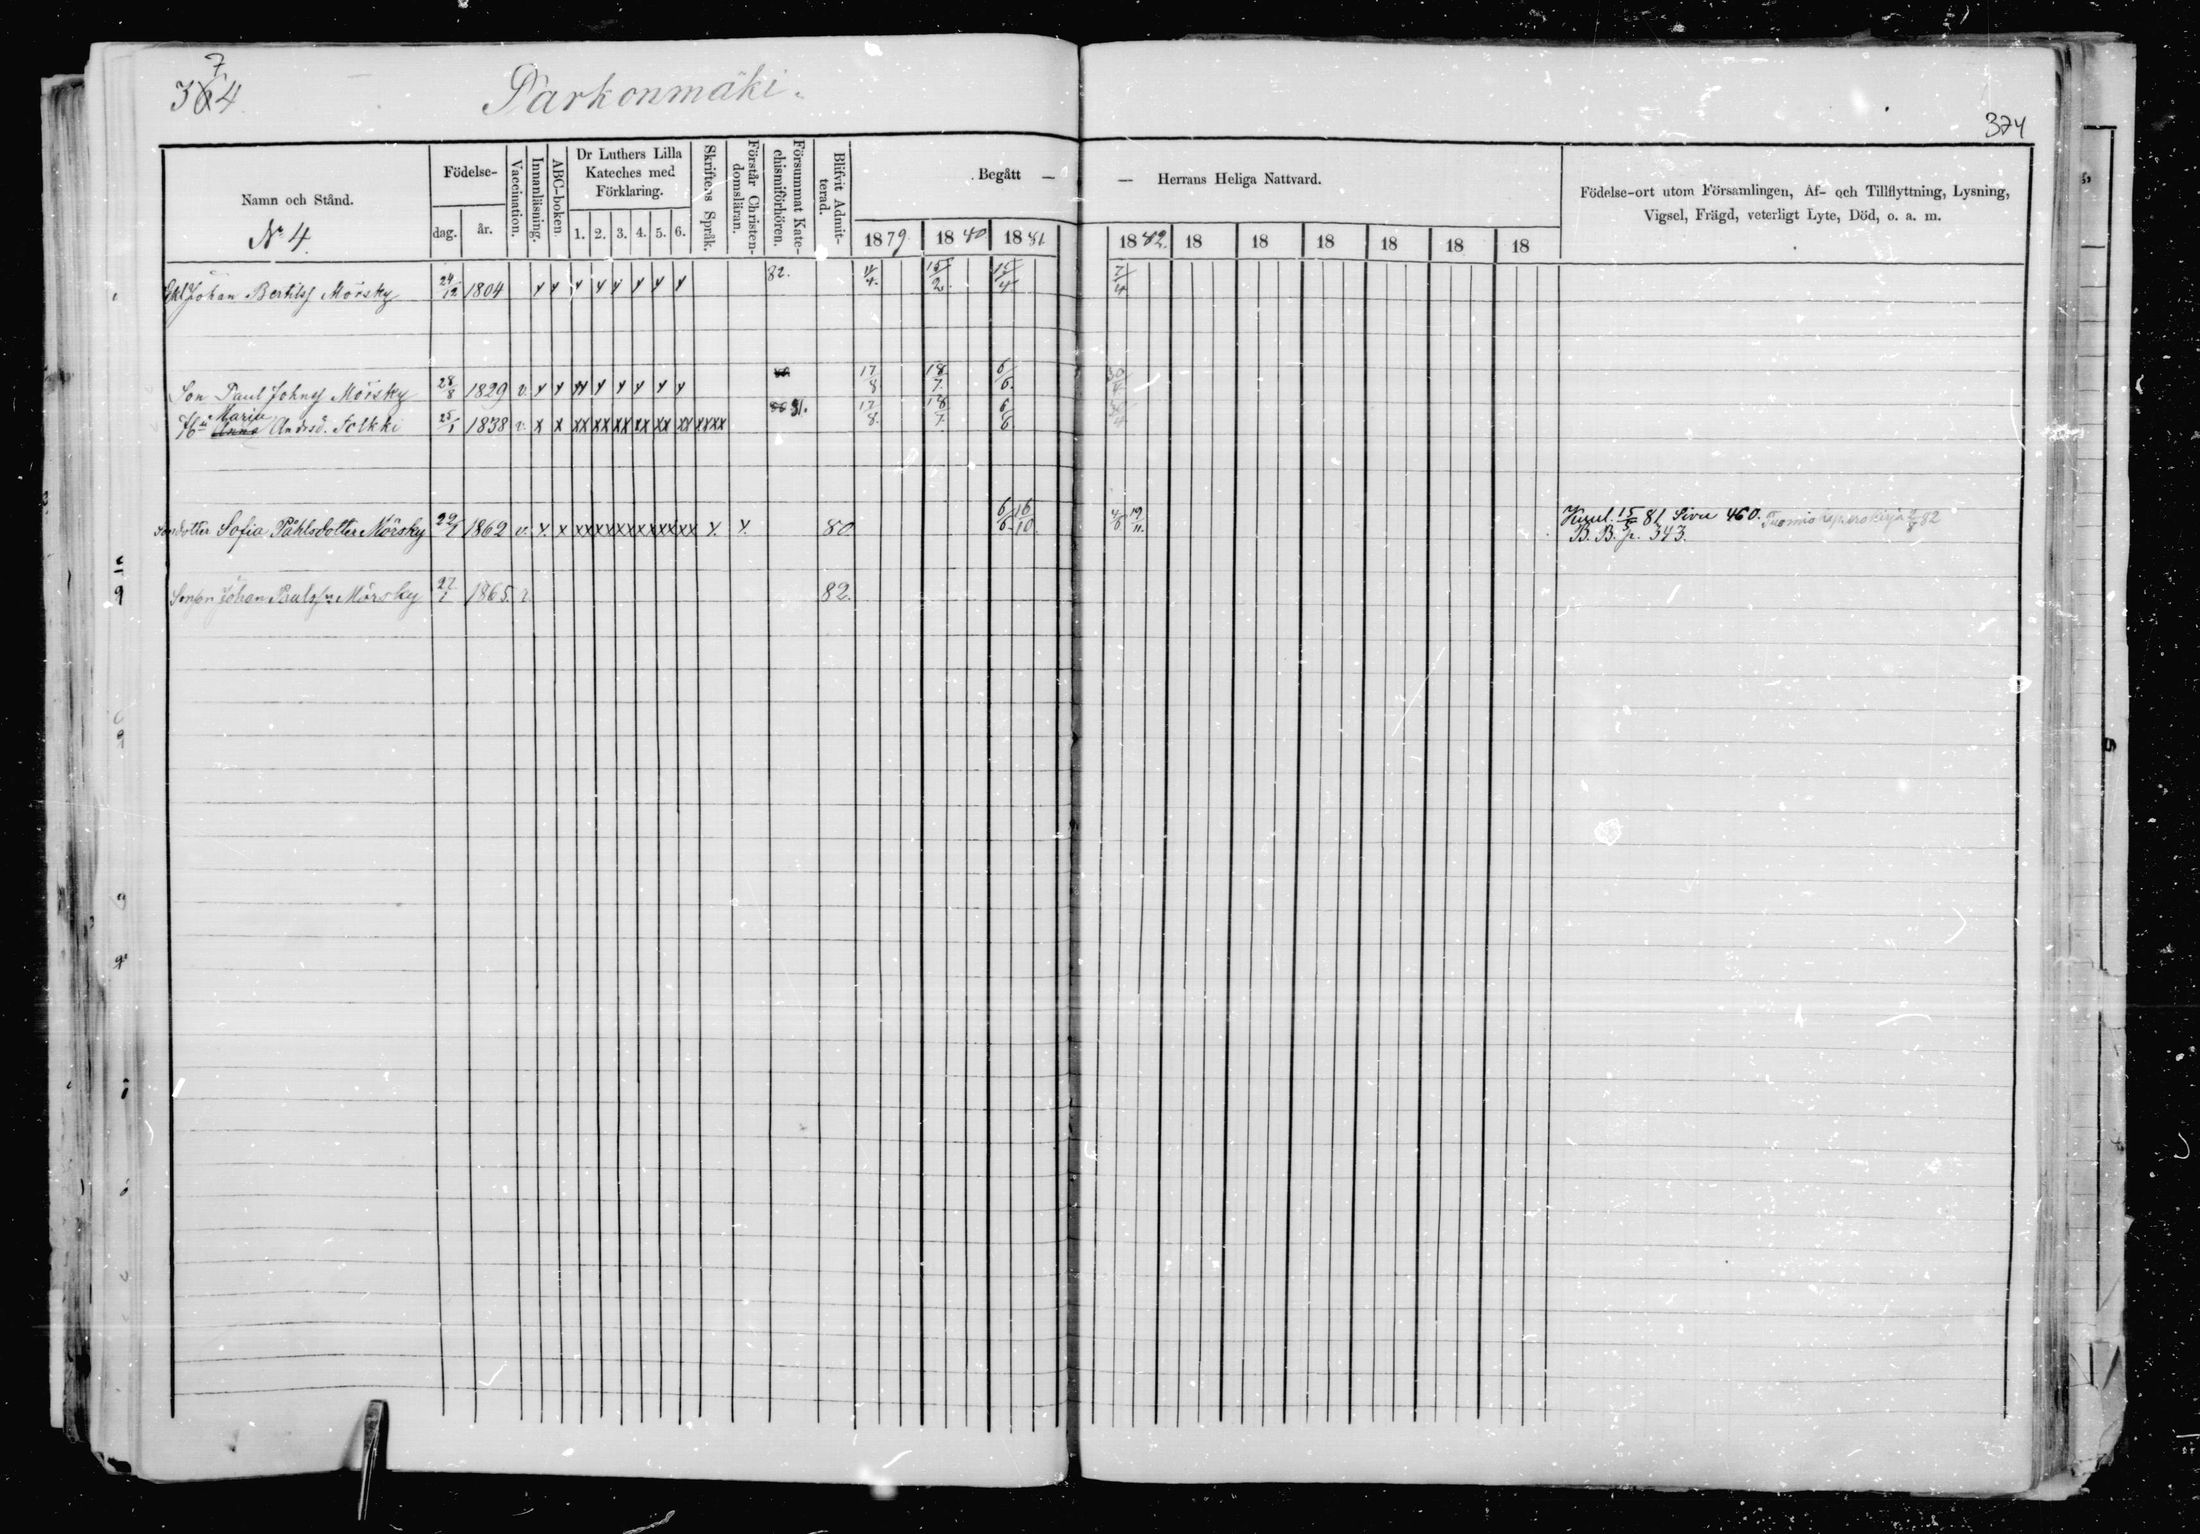 374
Parkonmäki.
374
Namn och Stånd.
No 4.
Födelse-
dag.
år.
Vaccination.
Innanläsning.
ABC-boken.
Dr Luthers Lilla
Kateches med
Förklaring.
1. 2. 3. 4. 5. 6.
Skriftens Språk.
Förstår Christen-
domsläran.
Försummat Kate-
chismiförhören.
Blifvit Admit-
terad.
Begått —
1879. 1880 1881
— Herrans Heliga Nattvard.
1882. 18 18 18 18 18 18
Födelse-ort utom Församlingen, Af- och Tillflyttning, Lysning,
Vigsel, Frägd, veterligt Lyte, Död, o. a. m.
Johan Bertilsf Mörsky 24/12 1804 82. 15/2 7/4
Son Paul Johnsf Mörsky 28/8 1829 v. 17/8 18/7 6/6
Maria
Hu Anna Andrsd. Tolkki 25/1 1838 v. x x xx xx xx xx xx xx xxxx 81. 17/8 18/7 6/6
Sondotter Sofia Påhlsdotter Mörsky 22/1 1862 v. x. x xx xx xx xx xx xx x. x. 80. 6/6 16/10 4/6 19/11.
Kuul. 15/5 81 Sivu 460. 2/8 82
B. B. p. 343.
Sonson Johan Paulsson Mörsky 27/1 1865. v. 82.